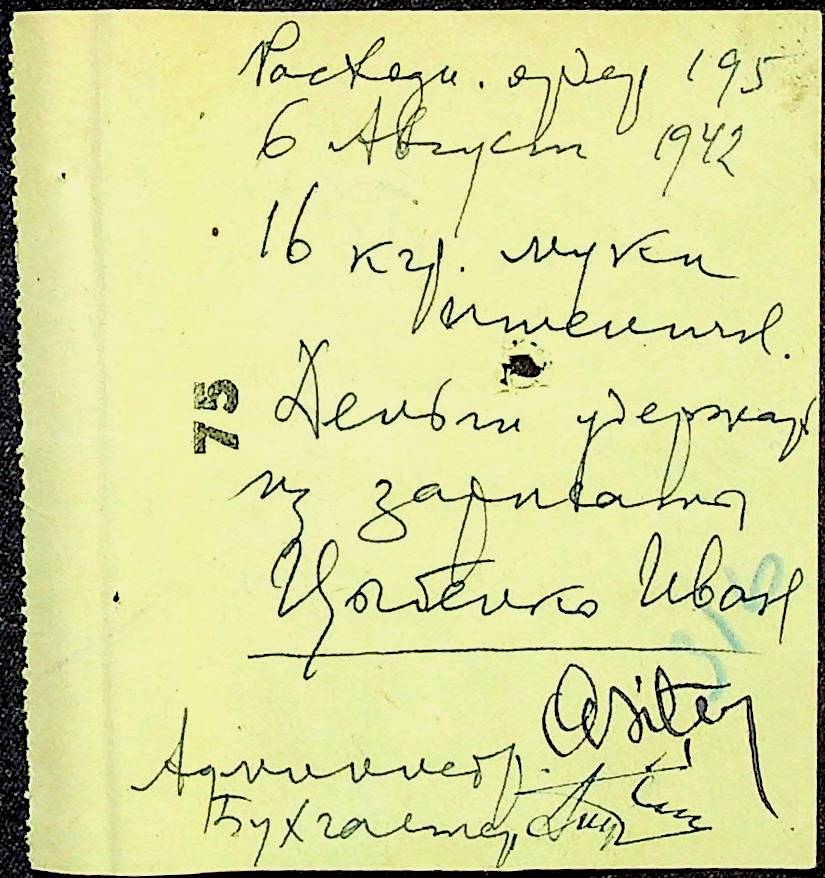 Расходн. ордер 195
6 Август 1942
16 кгр. муки
пшеничн.
75
Деньги удержат
из зарплаты
Цыбенко Иван
Администр.
Бухгалтер